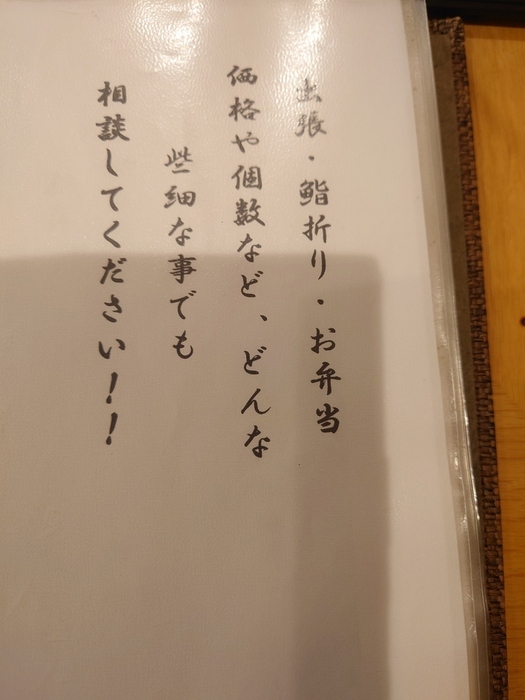 出張・鮨折り・お弁当
価格や個数など、どんな
些細な事でも
相談してください!!